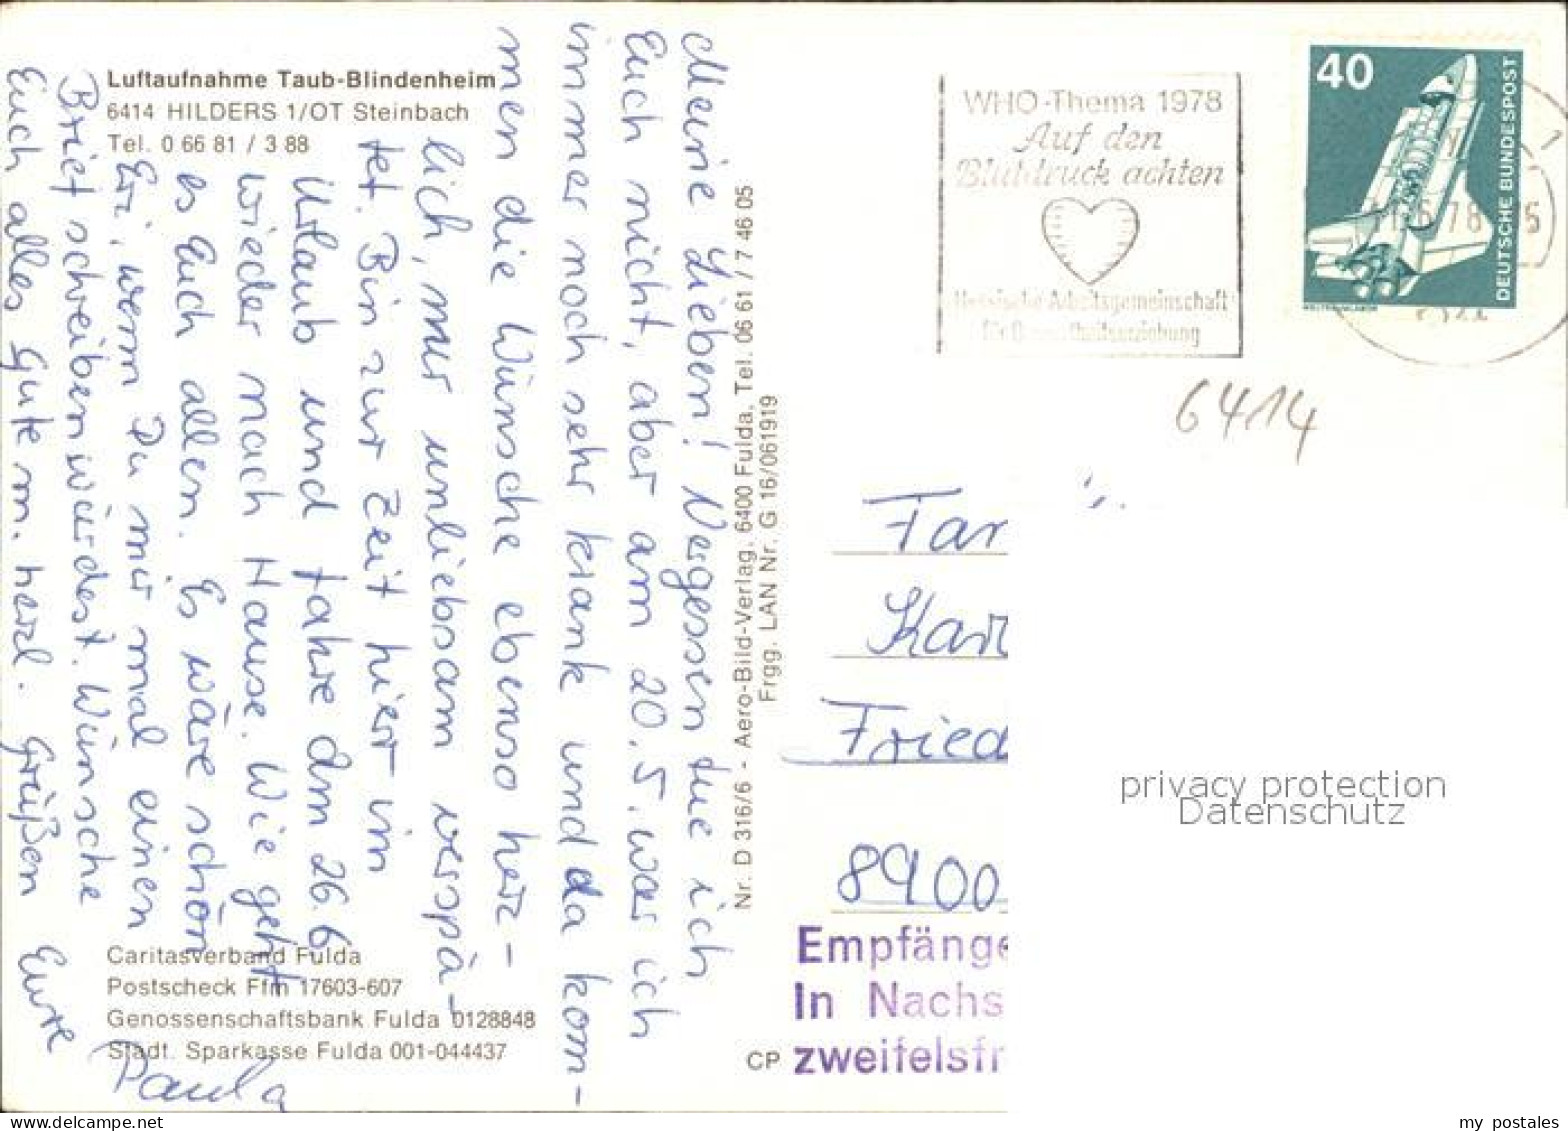 Luftaufnahme Taub-Blindenheim
6414 HILDERS 1/OT Steinbach
Tel. 0 66 81 / 3 88
Meine Lieben! Vergessen tue ich
Euch nicht, aber am 20.5. war ich
immer noch sehr krank und da kom-
men die Wünsche ebenso herz-
lich, nur unliebsam verspä-
tet. Bin zur Zeit hier im
Urlaub und fahre am 26.6
wieder nach Hause. Wie geht
es Euch allen. Es wäre schön
Eri, wenn Du mir mal einen
Brief schreiben würdest. Wünsche
Euch alles Gute m. herzl. Grüßen Eure
Paula
Caritasverband Fulda
Postscheck Ffm 17603-607
Genossenschaftsbank Fulda 0128848
Städt. Sparkasse Fulda 001-044437
Nr. D 316/6 - Aero-Bild-Verlag, 6400 Fulda, Tel. 06 61 / 7 46 05
Frgg. LAN Nr. G 16/061919
CP
WHO-Thema 1978
Auf den
Blutdruck achten
Hessische Arbeitsgemeinschaft
für Gesundheitserziehung
40
DEUTSCHE BUNDESPOST
6414
Fam
Karl
Fried
8900
Empfänge
In Nachs
zweifelsfr
privacy protection
Datenschutz
my postales